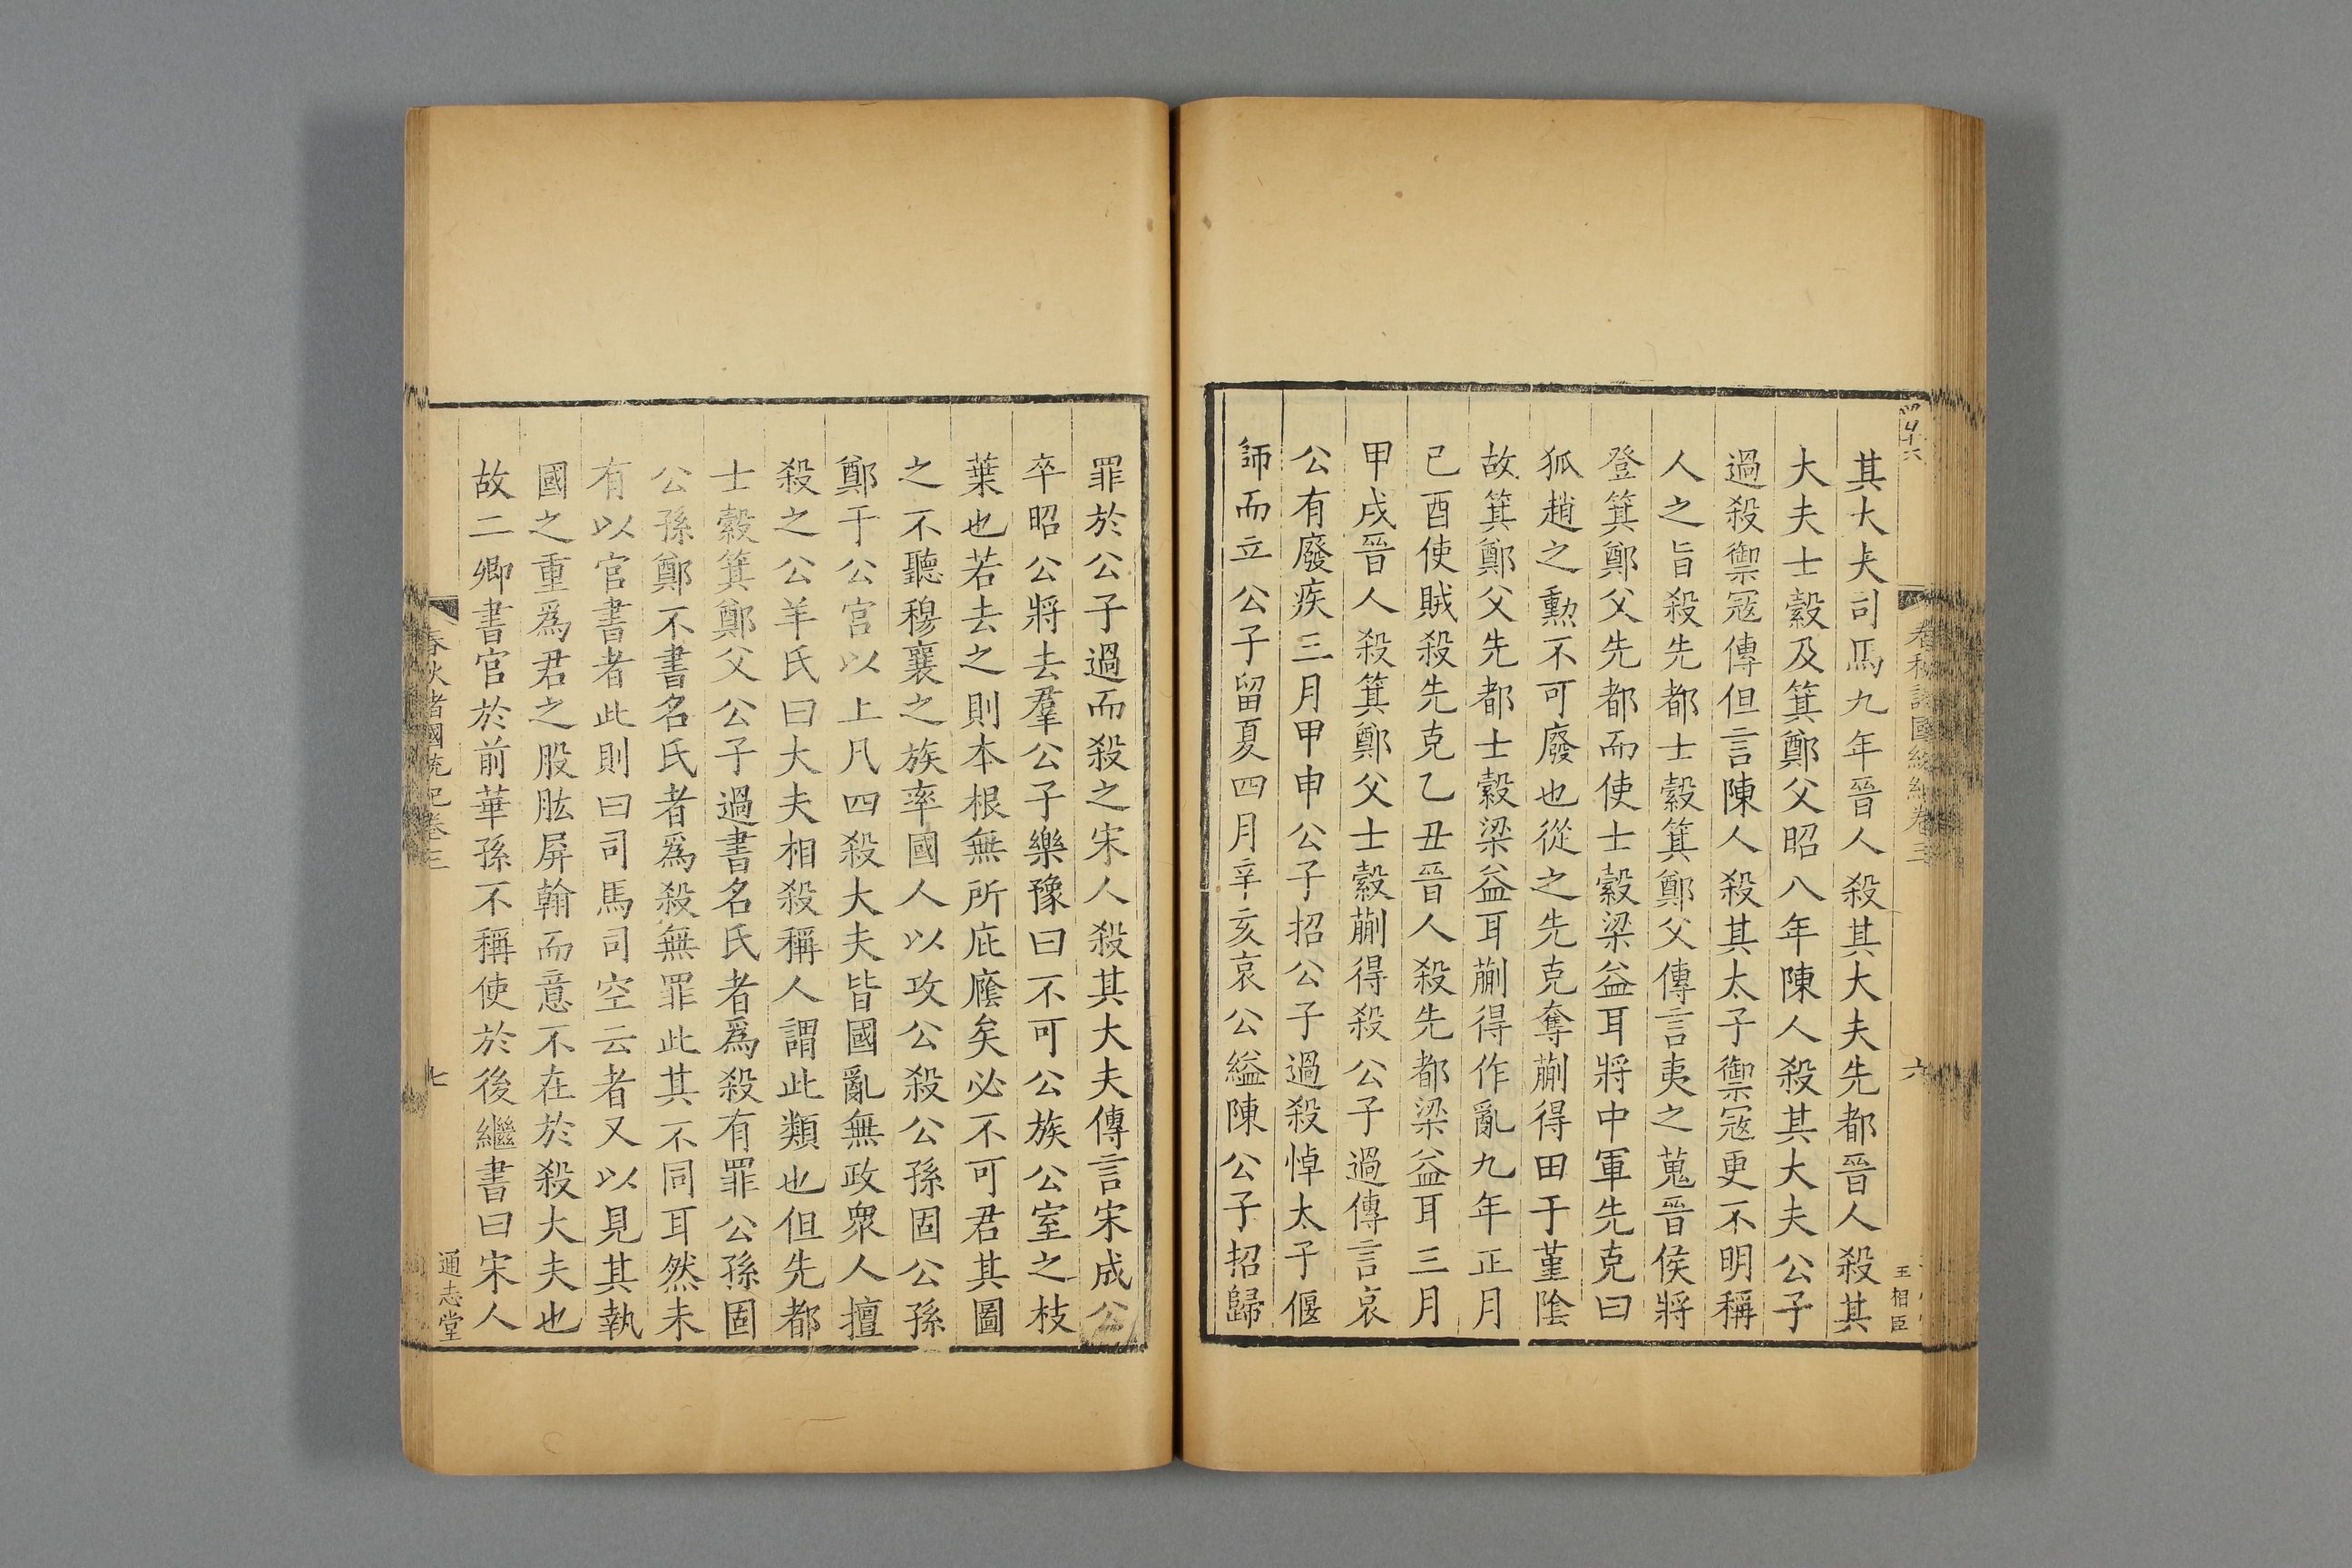 其大夫司馬九年晉人殺其大夫先都晉人殺其
大夫士縠及箕鄭父昭八年陳人殺其大夫公子
過殺禦寇傳但言陳人殺其太子禦寇更不明稱
人之旨殺先都士縠箕鄭父傳言夷之蒐晉侯將
登箕鄭父先都而使士縠梁益耳將中軍先克曰
狐趙之勲不可廢也從之先克奪蒯得田于堇陰
故箕鄭父先都士縠梁益耳蒯得作亂九年正月
己酉使賊殺先克乙丑晉人殺先都梁益耳三月
甲戌晉人殺箕鄭父士縠蒯得殺公子過傳言哀
公有廢疾三月甲申公子招公子過殺悼太子偃
師而立公子留夏四月辛亥哀公縊陳公子招歸
春秋諸國統紀卷三
六
王相臣
罪於公子過而殺之宋人殺其大夫傳言宋成公
卒昭公將去羣公子樂豫曰不可公族公室之枝
葉也若去之則本根無所庇廕矣必不可君其圖
之不聽穆襄之族率國人以攻公殺公孫固公孫
鄭于公宮以上凡四殺大夫皆國亂無政眾人擅
殺之公羊氏曰大夫相殺稱人謂此類也但先都
士縠箕鄭父公子過書名氏者爲殺有罪公孫固
公孫鄭不書名氏者爲殺無罪此其不同耳然未
有以官書者此則曰司馬司空云者又以見其執
國之重爲君之股肱屏翰而意不在於殺大夫也
故二卿書官於前華孫不稱使於後繼書曰宋人
春秋諸國統紀卷三
七
通志堂